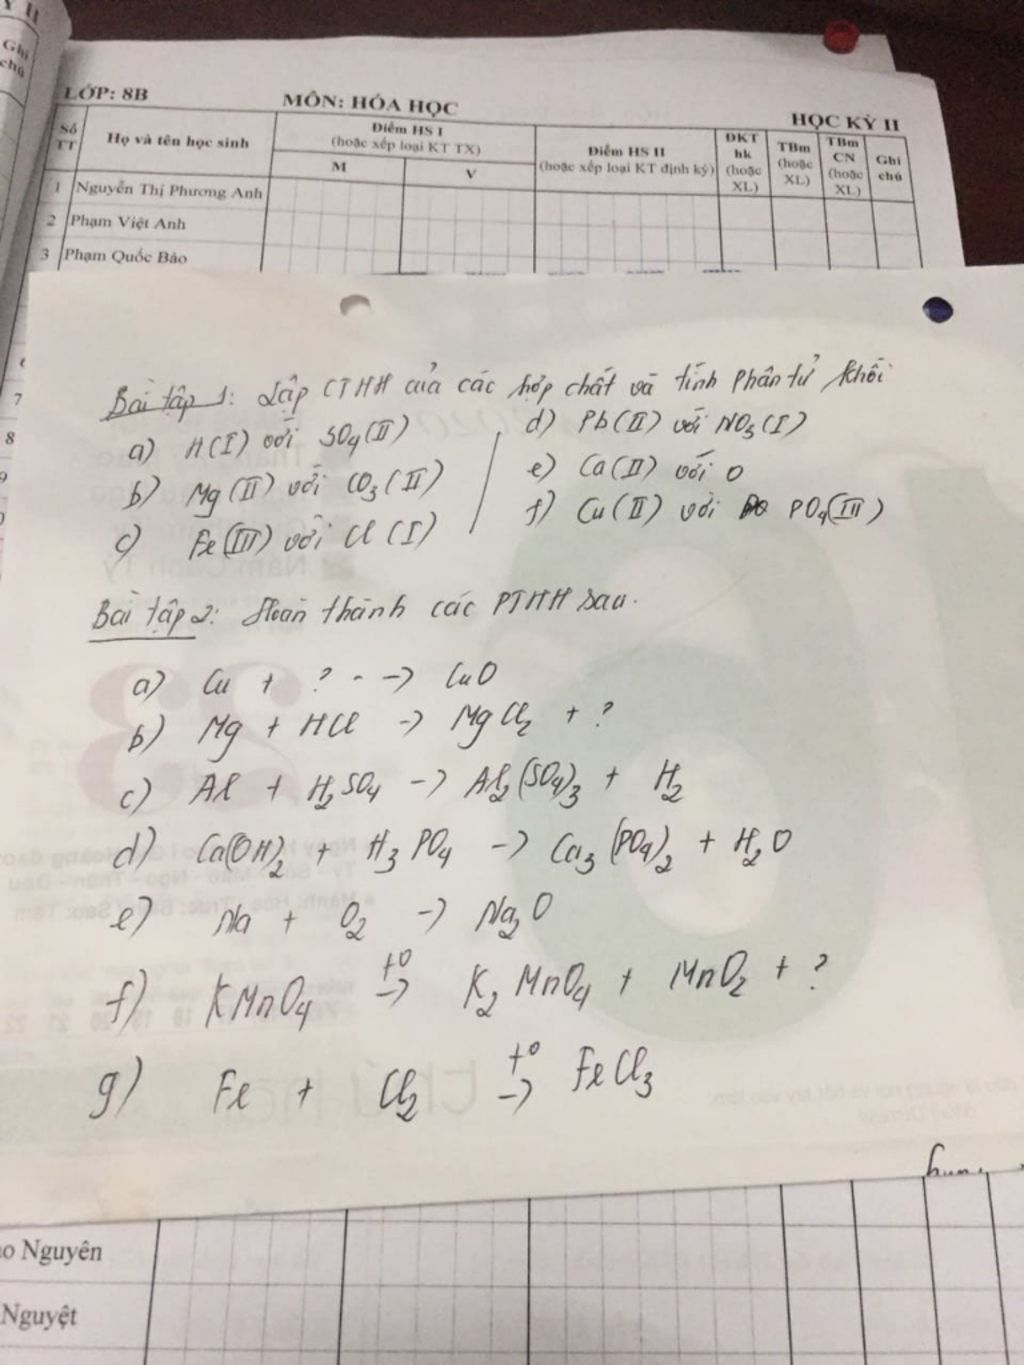 Ghi
chú
LỚP: 8B
MÔN: HÓA HỌC
HỌC KỲ II
Số
TT
Họ và tên học sinh
Điểm HS I
(hoặc xếp loại KT TX)
M
V
Điểm HS II
(hoặc xếp loại KT định kỳ)
ĐKT
hk
(hoặc
XL)
TBm
(hoặc
XL)
TBm
CN
(hoặc
XL)
Ghi
chú
1 Nguyễn Thị Phương Anh
2 Phạm Việt Anh
3 Phạm Quốc Bảo
7
8
Bài tập 1: Lập CTHH của các hợp chất và tính Phân tử khối
a) H(I) với SO4(II)
b) Mg(II) với CO3(II)
c) Fe(III) với Cl(I)
d) Pb(II) với NO3(I)
e) Ca(II) với O
f) Cu(II) với PO4(III)
Bài tập 2: Hoàn thành các PTHH sau.
a) Cu + ? --> CuO
b) Mg + HCl -> MgCl2 + ?
c) Al + H2SO4 -> Al2(SO4)3 + H2
d) Ca(OH)2 + H3PO4 -> Ca3(PO4)2 + H2O
e) Na + O2 -> Na2O
f) KMnO4 t° -> K2MnO4 + MnO2 + ?
g) Fe + Cl2 t° -> FeCl3
Nguyên
Nguyệt